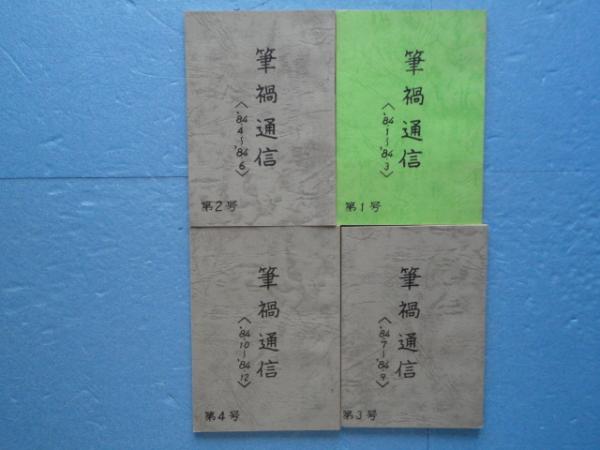 筆禍通信
〈'84 1〜'84 3〉
第1号
筆禍通信
〈'84 4〜'84 6〉
第2号
筆禍通信
〈'84 7〜'84 9〉
第3号
筆禍通信
〈'84 10〜'84 12〉
第4号